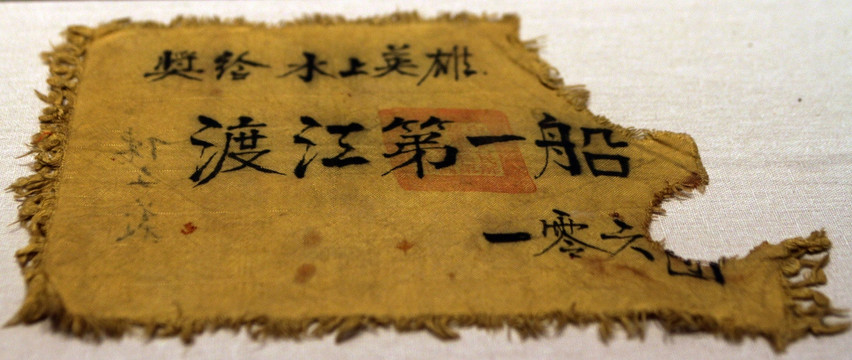 奬给 水上英雄.
渡江第一船
一零六团